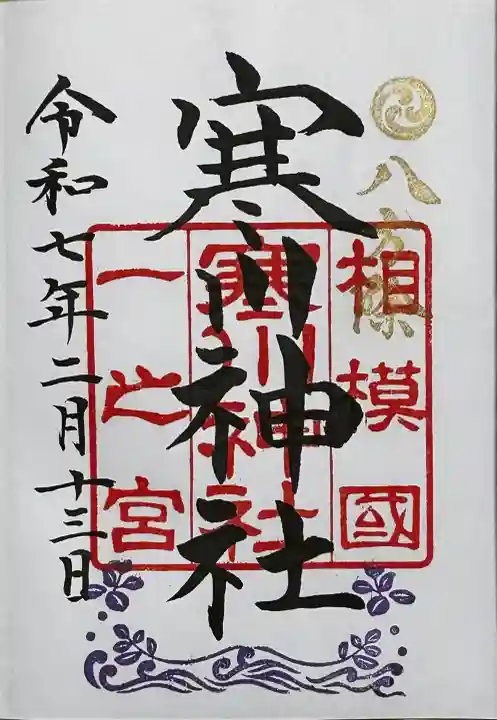 八方除
相模國
寒川神社
寒川神社
一之宮
令和七年二月十三日